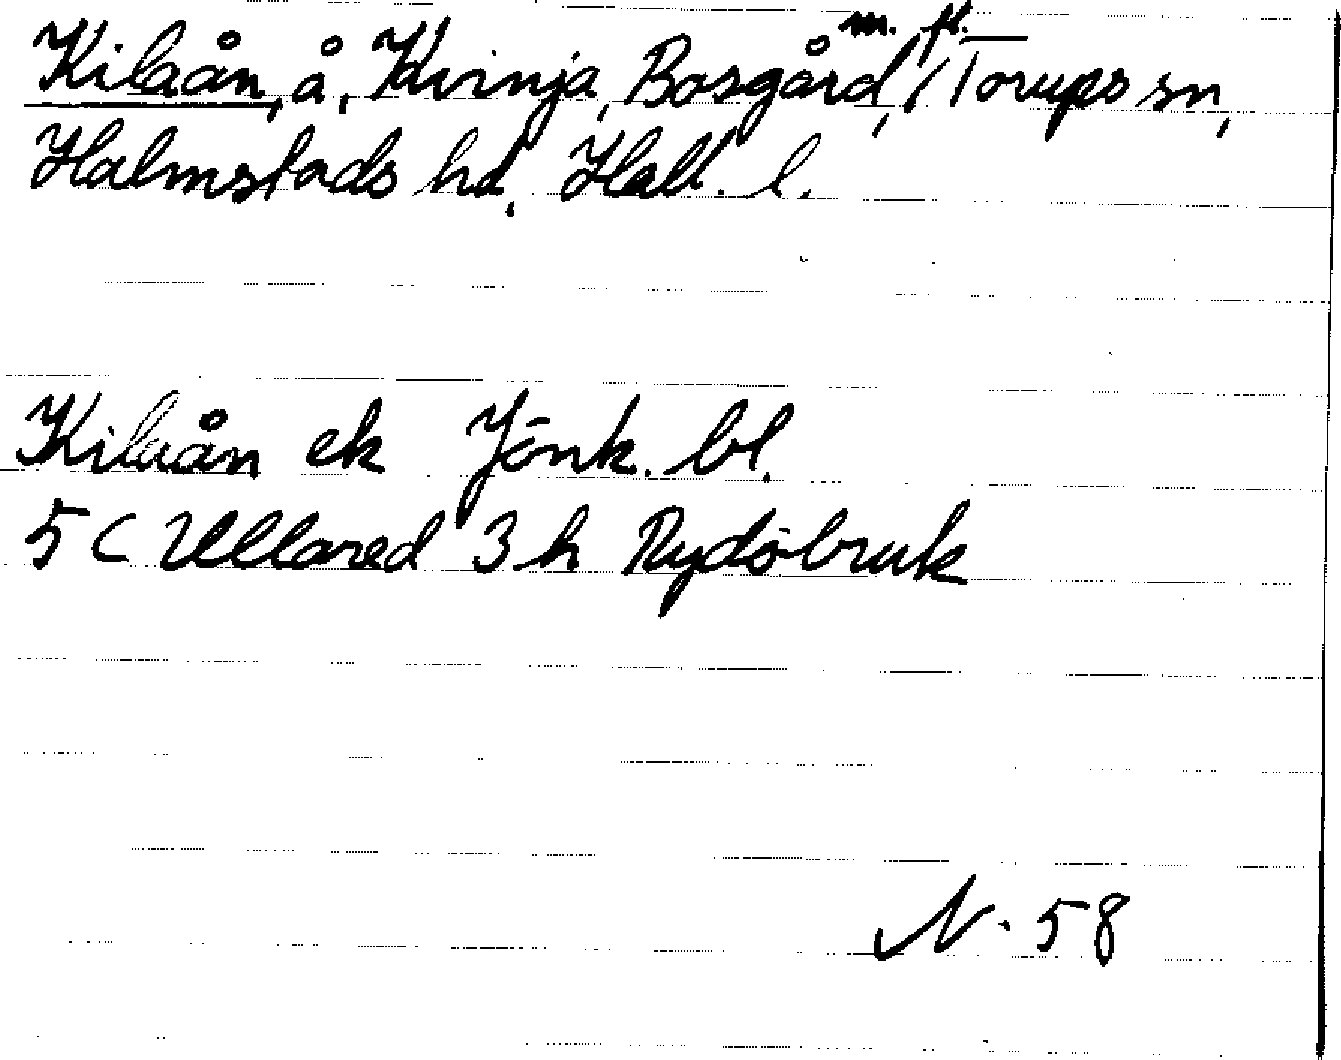 Kilaån, å, Kvinja, Bosgård, m. fl. / Torups sn,
Halmstads hd, Hall. l.
Kilaån ek Jönk. bl.
5 C Ullared 3 h Rydöbruk
N. 58